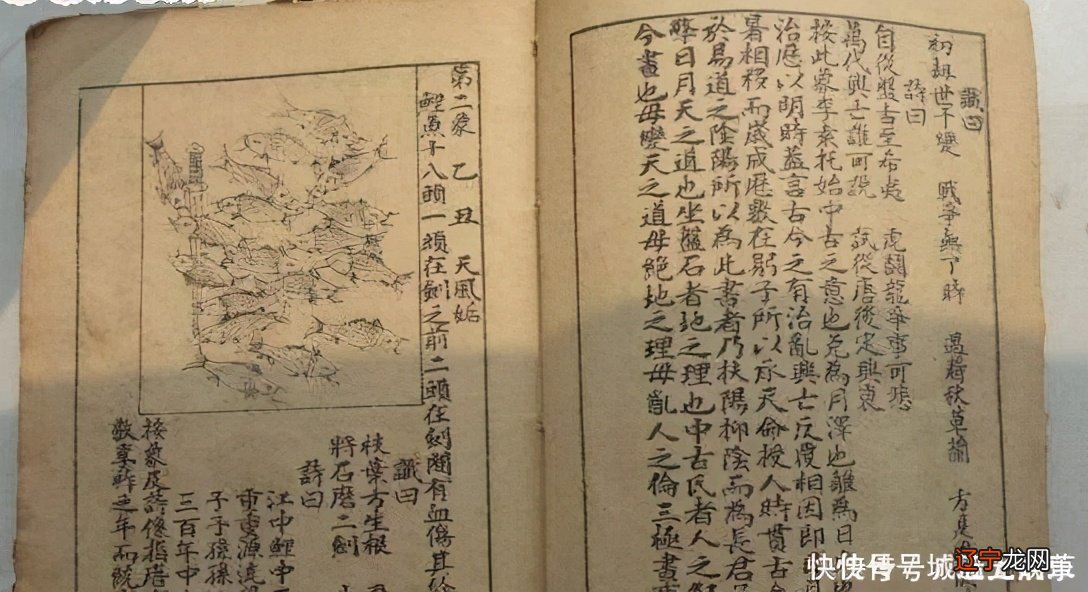 讖曰
初起世不變 戰爭無了時 秋草 方見
詩曰
自從盤古至希夷 虎鬭龍爭事可悲
萬代興亡誰可說 試從唐後定興衰
按此象李袁托始中古之意也兌為月澤也離為日
治歷以明時蓋言古今之有治亂興亡反復相因即
暑相移而歲成歷數在躬子所以承天命授人時貫古
於易道之陰陽所以為此書者乃扶陽抑陰而為長君
日月天之道也坐盤石者地之理也中古民者人之
今畫也毋變天之道毋絕地之理毋亂人之倫三極畫
第二象 乙丑 天風姤
鯉魚十八頭一頭在劍之前二頭在劍 有血傷其餘
讖曰
枝葉方生根
將石磨二劍
詩曰
江中鯉
重重源流
子子孫孫
三百年中
按象及詩像指唐
之年而
快传号
辽宁龙网